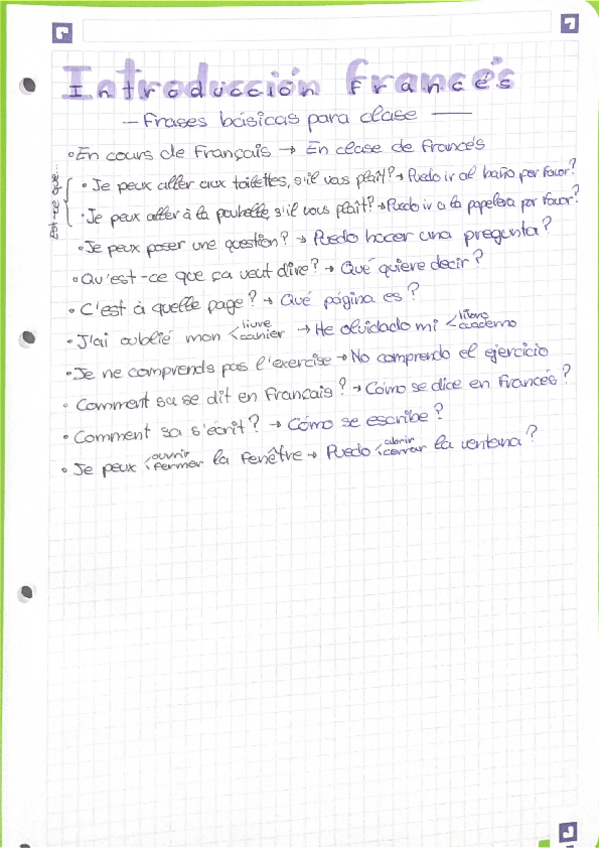 Introducción francés
— Frases básicas para clase —
• En cours de Français → En clase de francés
• Je peux aller aux toilettes, s'il vous plaît? → Puedo ir al baño por favor?
• Je peux aller à la poubelle, s'il vous plaît? → Puedo ir a la papelera por favor?
• Je peux poser une question? → Puedo hacer una pregunta?
• Qu'est-ce que ça veut dire? → Qué quiere decir?
• C'est à quelle page? → Qué página es?
• J'ai oublié mon < livre canier → He olvidado mi < libro cuaderno
• Je ne comprends pas l'exercise → No comprendo el ejercicio
• Comment sa se dit en Français? → Cómo se dice en francés?
• Comment sa s'écrit? → Cómo se escribe?
• Je peux < ouvrir fermer la fenêtre → Puedo < abrir cerrar la ventana?